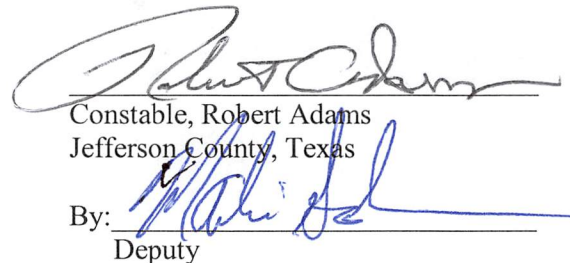 Robert Adams
Constable, Robert Adams
Jefferson County, Texas
By:
Deputy